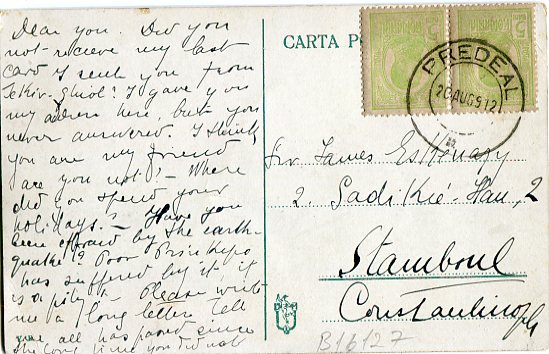 Dear you. Did you
not recieve my last
card I sent you from
Tekir-Ghiol? I gave you
my address here, but you
never answered. I think
you are my friend
are you not? – Where
did you spend your
holidays? – Have you
been affraid by the earth-
quake? Poor Prinkipo
has suffered by it, it
is a pity! – Please write
me a long letter. Tell
me all has passed since
the long time you did not
CARTA PO
5
5
PREDEAL
20 AUG 912
Sir James Eskenazy
2. Sadikié-Han, 2
Stamboul
Constantinople
B16127